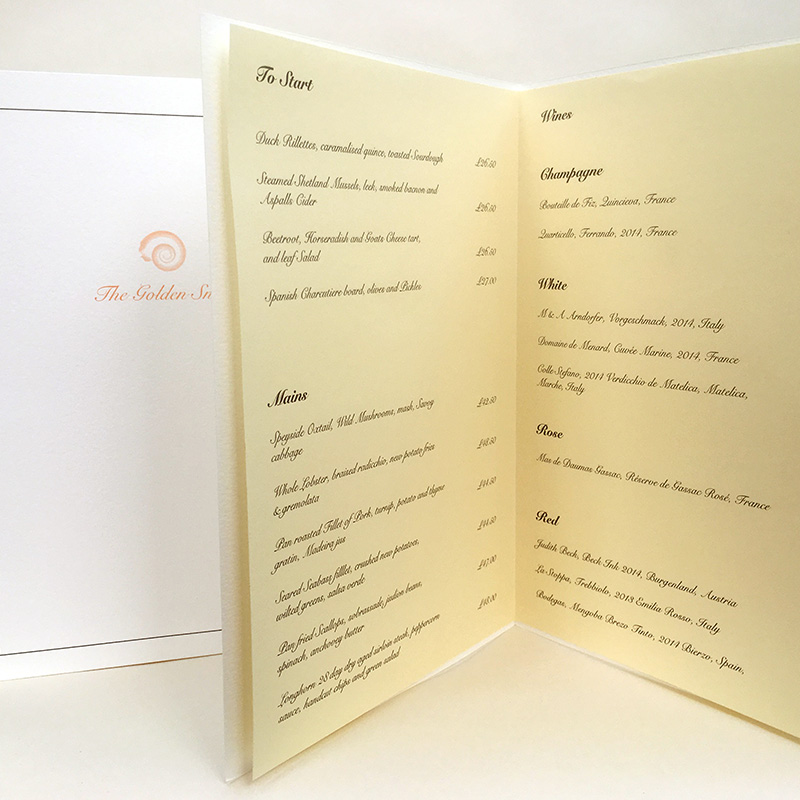 The Golden Sn
To Start
Duck Rillettes, caramalised quince, toasted Sourdough £26.50
Steamed Shetland Mussels, leek, smoked bacnon and
Aspalls Cider £26.50
Beetroot, Horseradish and Goats Cheese tart,
and leaf Salad £26.50
Spanish Charcutiere board, olives and Pickles £27.00
Mains
Speyside Oxtail, Wild Mushrooms, mash, Savoy £42.50
cabbage
Whole Lobster, braised radicchio, new potato fries £48.50
& gremolata
Pan roasted Fillet of Pork, turnup, potato and thyme £44.50
gratin, Madeira jus
Seared Seabass filllet, crushed new potatoes, £44.50
wilted greens, salsa verde
Pan fried Scallops, sobrassade, judion beans, £47.00
spinach, anchovey butter
Longhorn 28 day dry aged sirloin steak, peppercorn £48.00
sauce, handcut chips and green salad
Wines
Champagne
Bouteille de Fiz, Quincieva, France
Quarticello, Ferrando, 2014, France
White
M & A Arndorfer, Vorgeschmack, 2014, Italy
Domaine de Menard, Cuvée Marine, 2014, France
Colle Stefano, 2014 Verdicchio de Matelica, Matelica,
Marche, Italy
Rose
Mas de Daumas Gassac, Réserve de Gassac Rosé, France
Red
Judith Beck, Beck Ink 2014, Burgenland, Austria
La Stoppa, Trebbiolo, 2013 Emilia Rosso, Italy
Bodegas, Mengoba Brezo Tinto, 2014 Bierzo, Spain,